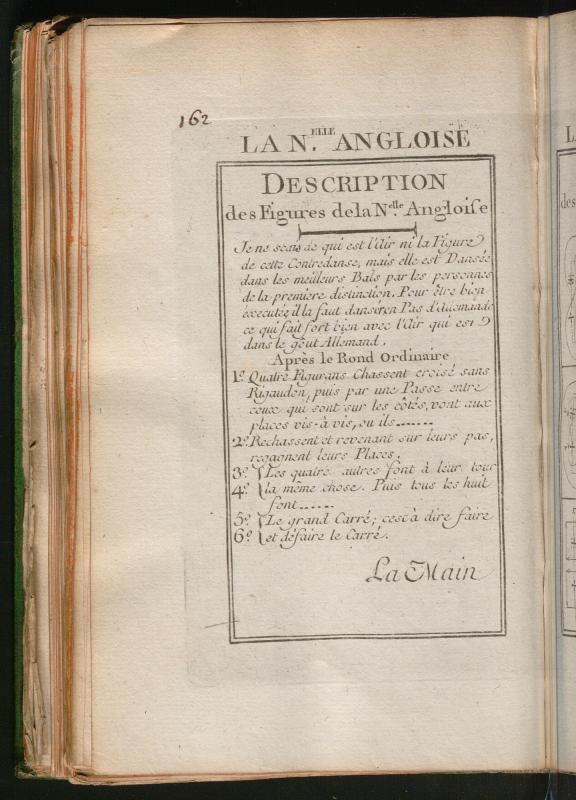 162
LA N.ELLE ANGLOISE
DESCRIPTION
des Figures de la N.elle Angloiſe
Je ne scais de qui est l'Air ni la Figure
de cette Contredanse, mais elle est Dansée
dans les meilleurs Bals par les personnes
de la premiere distinction. Pour être bien
éxecutée il la faut danser en Pas d'Allemande
ce qui fait fort bien avec l'Air qui est
dans le goût Allemand.
Après le Rond Ordinaire
1.º Quatre Figurans Chassent croisé sans
Rigaudon, puis par une Passe entre
ceux qui sont sur les côtés, vont aux
places vis-à vis, ou ils.......
2.º Rechassent et revenant sur leurs pas,
regagnent leurs Places.
3.º { Les quatre autres font à leur tour
4.º { la même chose. Puis tous les huit
font......
5.º { Le grand Carré; c'est à dire faire
6.º { et défaire le Carré.
La Main
L
des